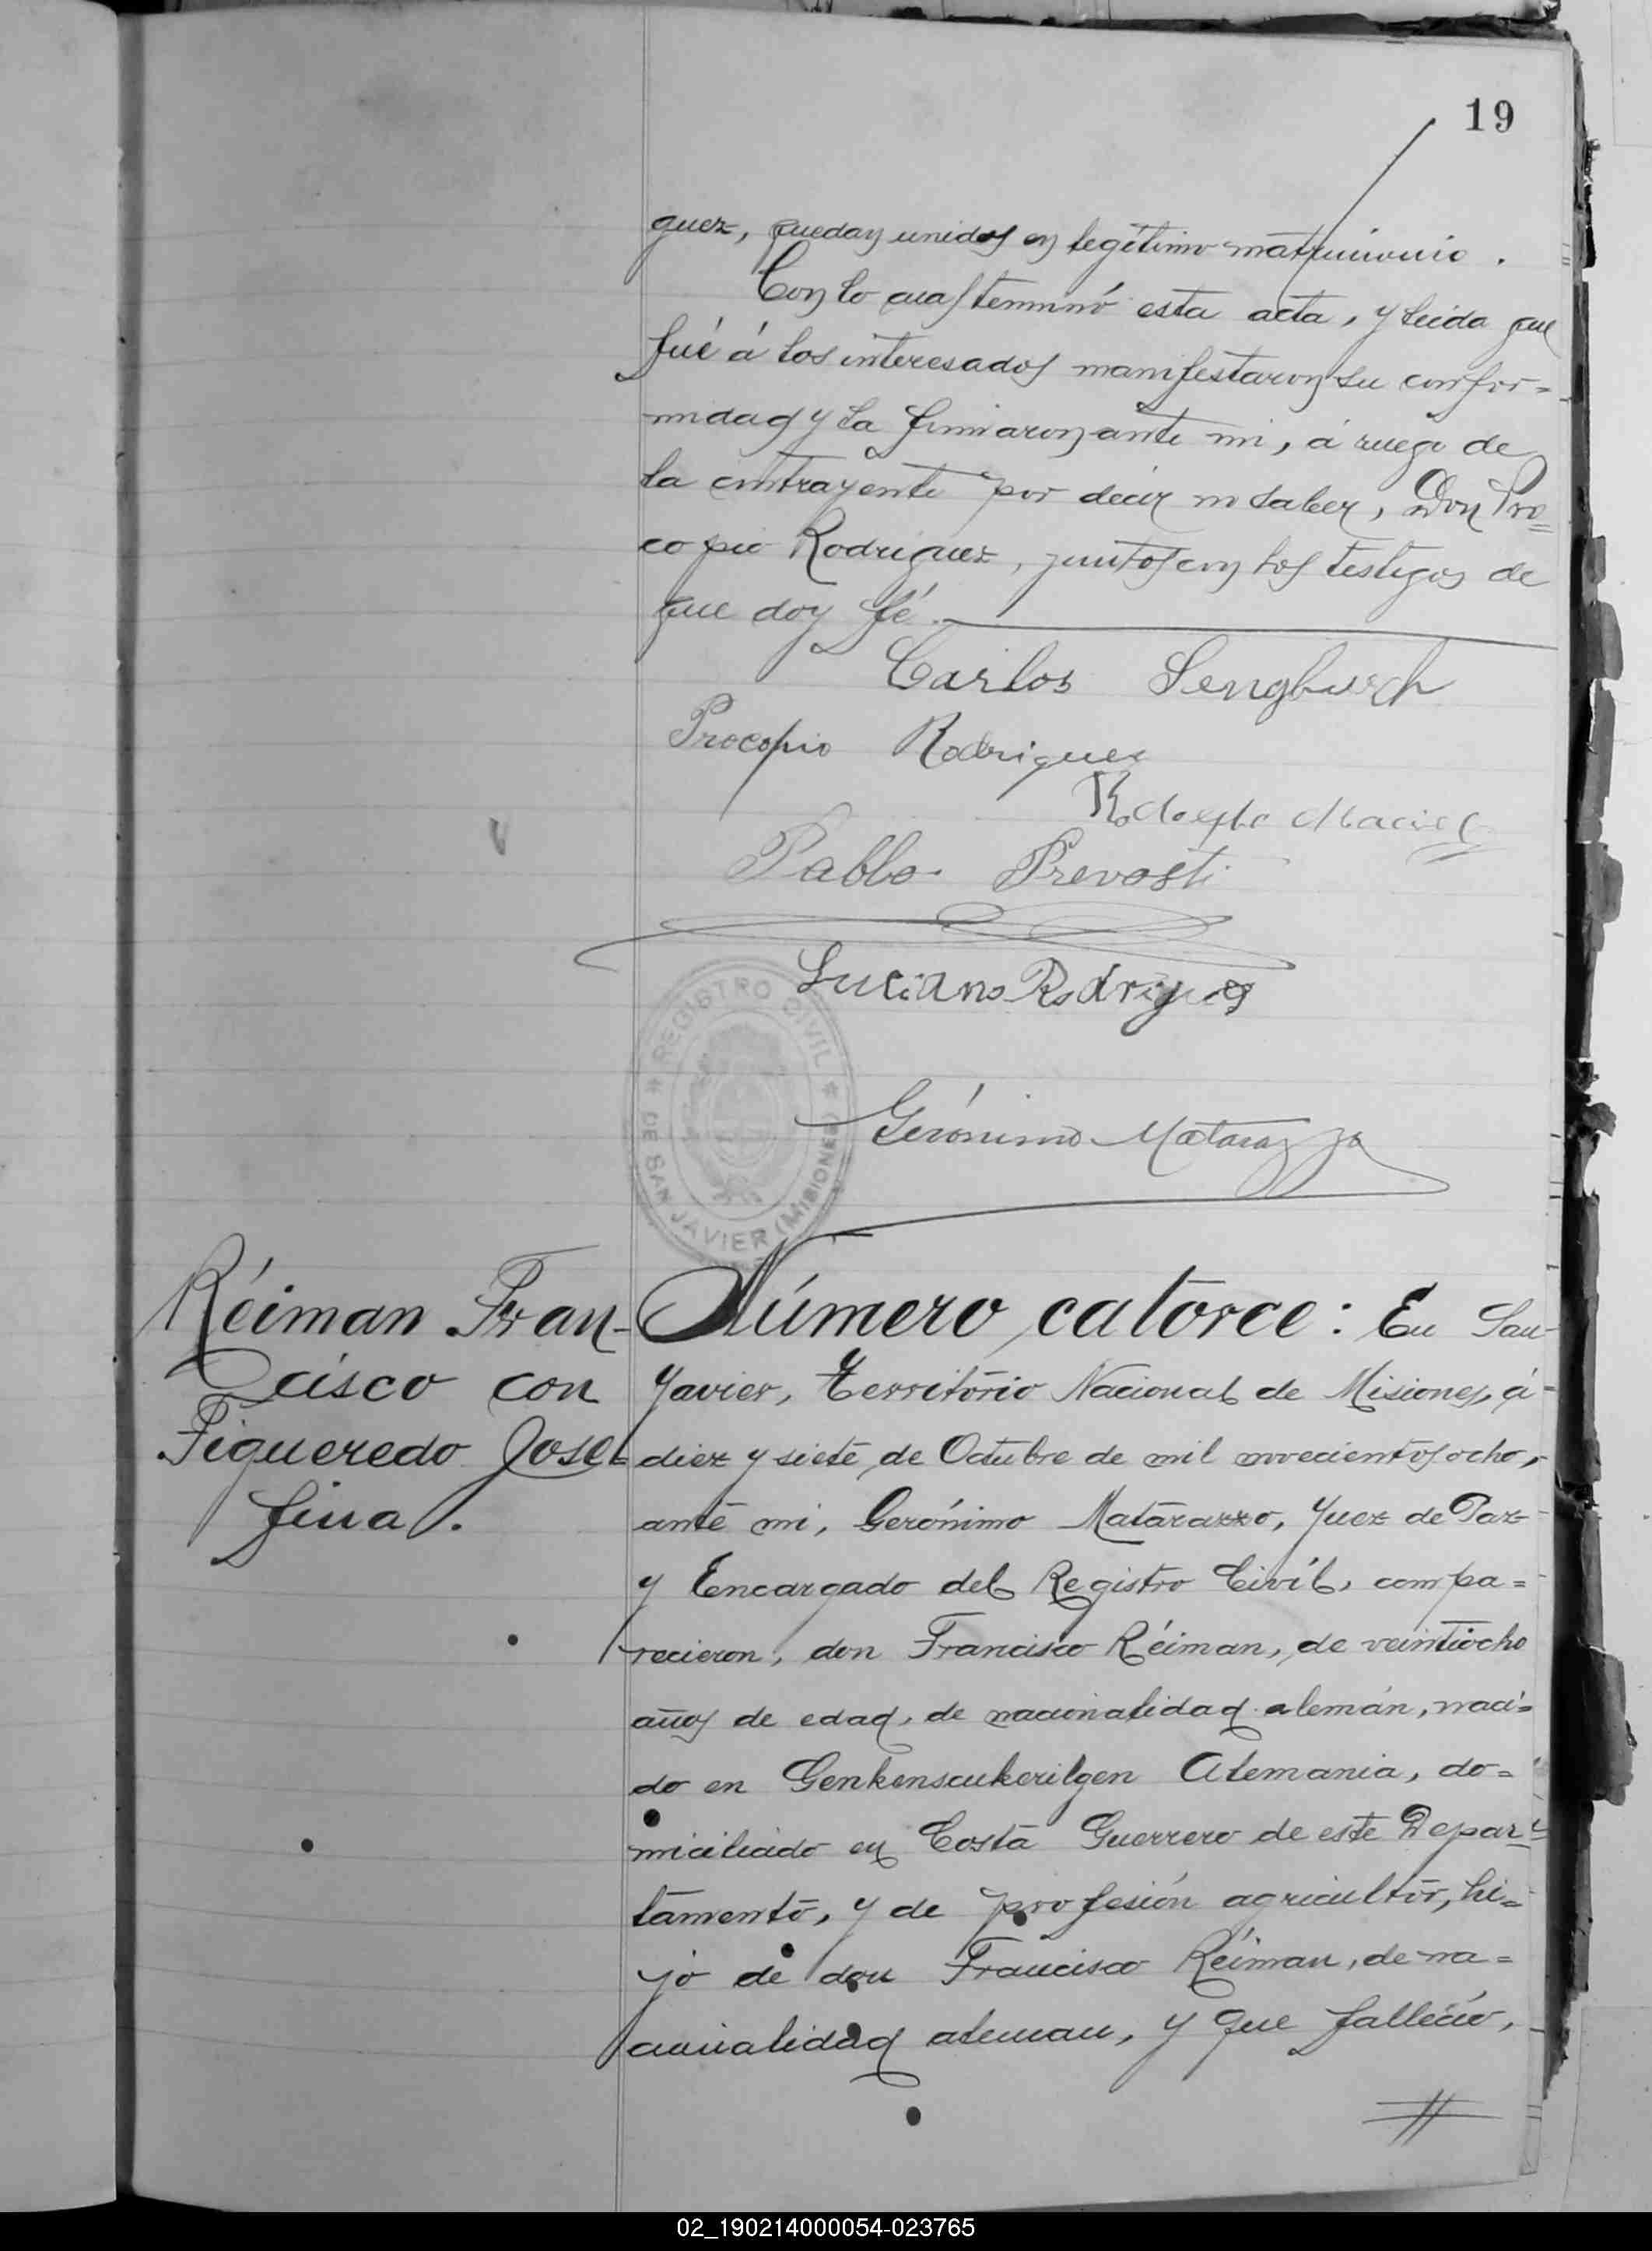 19
guez, quedan unidos en legítimo matrimonio.
Con lo cual terminó esta acta, y leida que
fué á los interesados manifestaron su confor-
midad y la firmaron ante mi, á ruego de
la contrayente por decir no saber, Don Pro=
copio Rodriguez, juntos con los testigos de
que doy fé.
Carlos Sengbusch
Procopio Rodrigues
Rodolfo Maciel
Pablo Prevosti
Luciano Rodrigues
REGISTRO CIVIL
DE SAN JAVIER (MISIONES)
Gerónimo Matarazzo
Réiman Fran-
cisco con
Figueredo Jose-
fina.
Número catorce: En San
Javier, Territorio Nacional de Misiones, á
diez y siete de Octubre de mil novecientos ocho,
ante mi, Gerónimo Matarazzo, Juez de Paz
y Encargado del Registro Civil, compa=
recieron, don Francisco Réiman, de veintiocho
años de edad, de nacionalidad alemán, naci=
do en Genkenscukerilgen Alemania, do=
miciliado en Costa Guerrero de este Depar=
tamento, y de profesión agricultor, hi=
jo de don Francisco Réiman, de na=
cionalidad aleman, y que falleció,
02_190214000054-023765